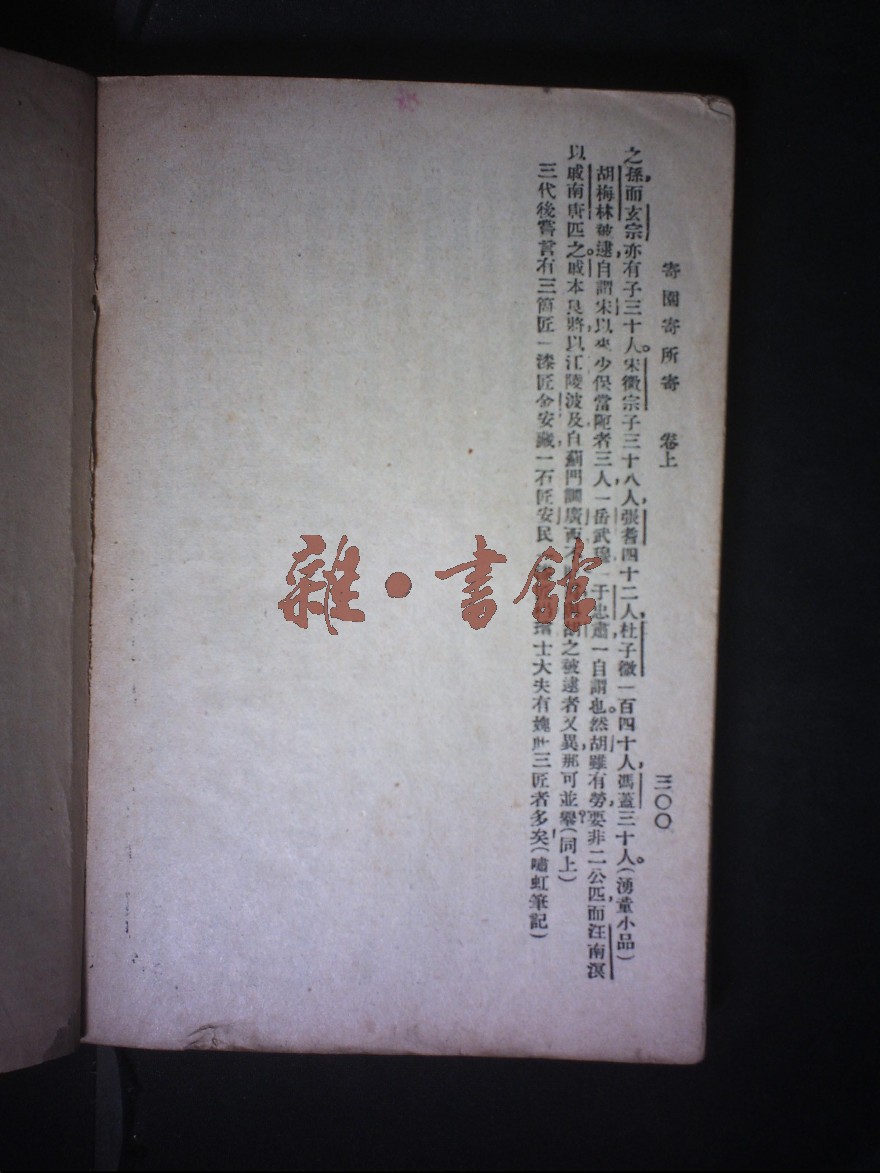 寄園寄所寄　卷上　三〇〇
之孫，而玄宗亦有子三十人。宋徽宗子三十八人，張耆四十二人，杜子微一百四十人，馮蓋三十人。（湧童小品）
胡梅林被逮，自謂宋以來少保當阨者三人，一岳武穆，一于忠肅，一自謂也。然胡雖有勞，要非二公匹，而汪南溟
以戚南唐匹之。戚本良將，以江陵波及，自薊門調廣西，不之被逮者又異，那可並舉？（同上）
三代後嘗言有三箇匠，一漆匠金安藏，一石匠安民，士大夫有媿此三匠者多矣。（嘯虹筆記）
雜·書館